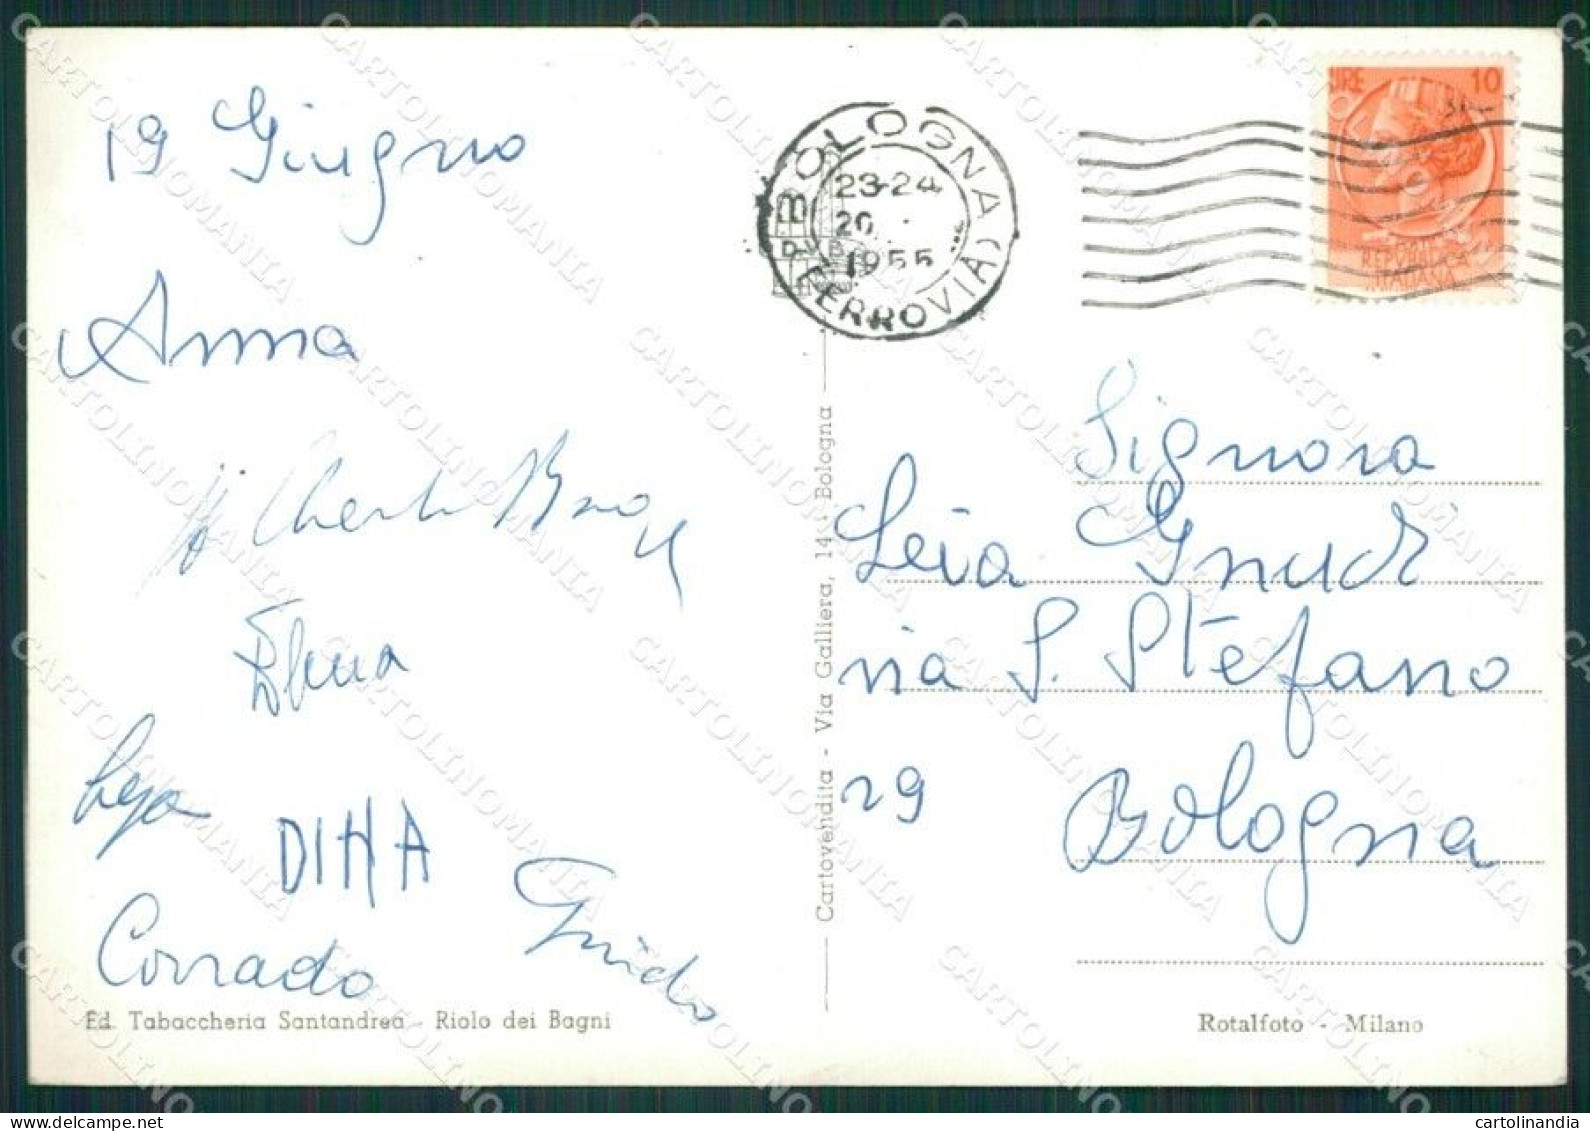 19 Giugno
Anna
Elena
DINA
Corrado
Guido
Ed. Tabaccheria Santandrea - Riolo dei Bagni
Cartovendita - Via Galliera, 14 - Bologna
BOLOGNA
(FERROVIA)
23-24
20
1955
LIRE 10
REPVBBLICA
ITALIANA
Signora
Leia Gnudi
via S. Stefano
29 Bologna
Rotalfoto - Milano
CARTOLINOMANIA
cartolinandia